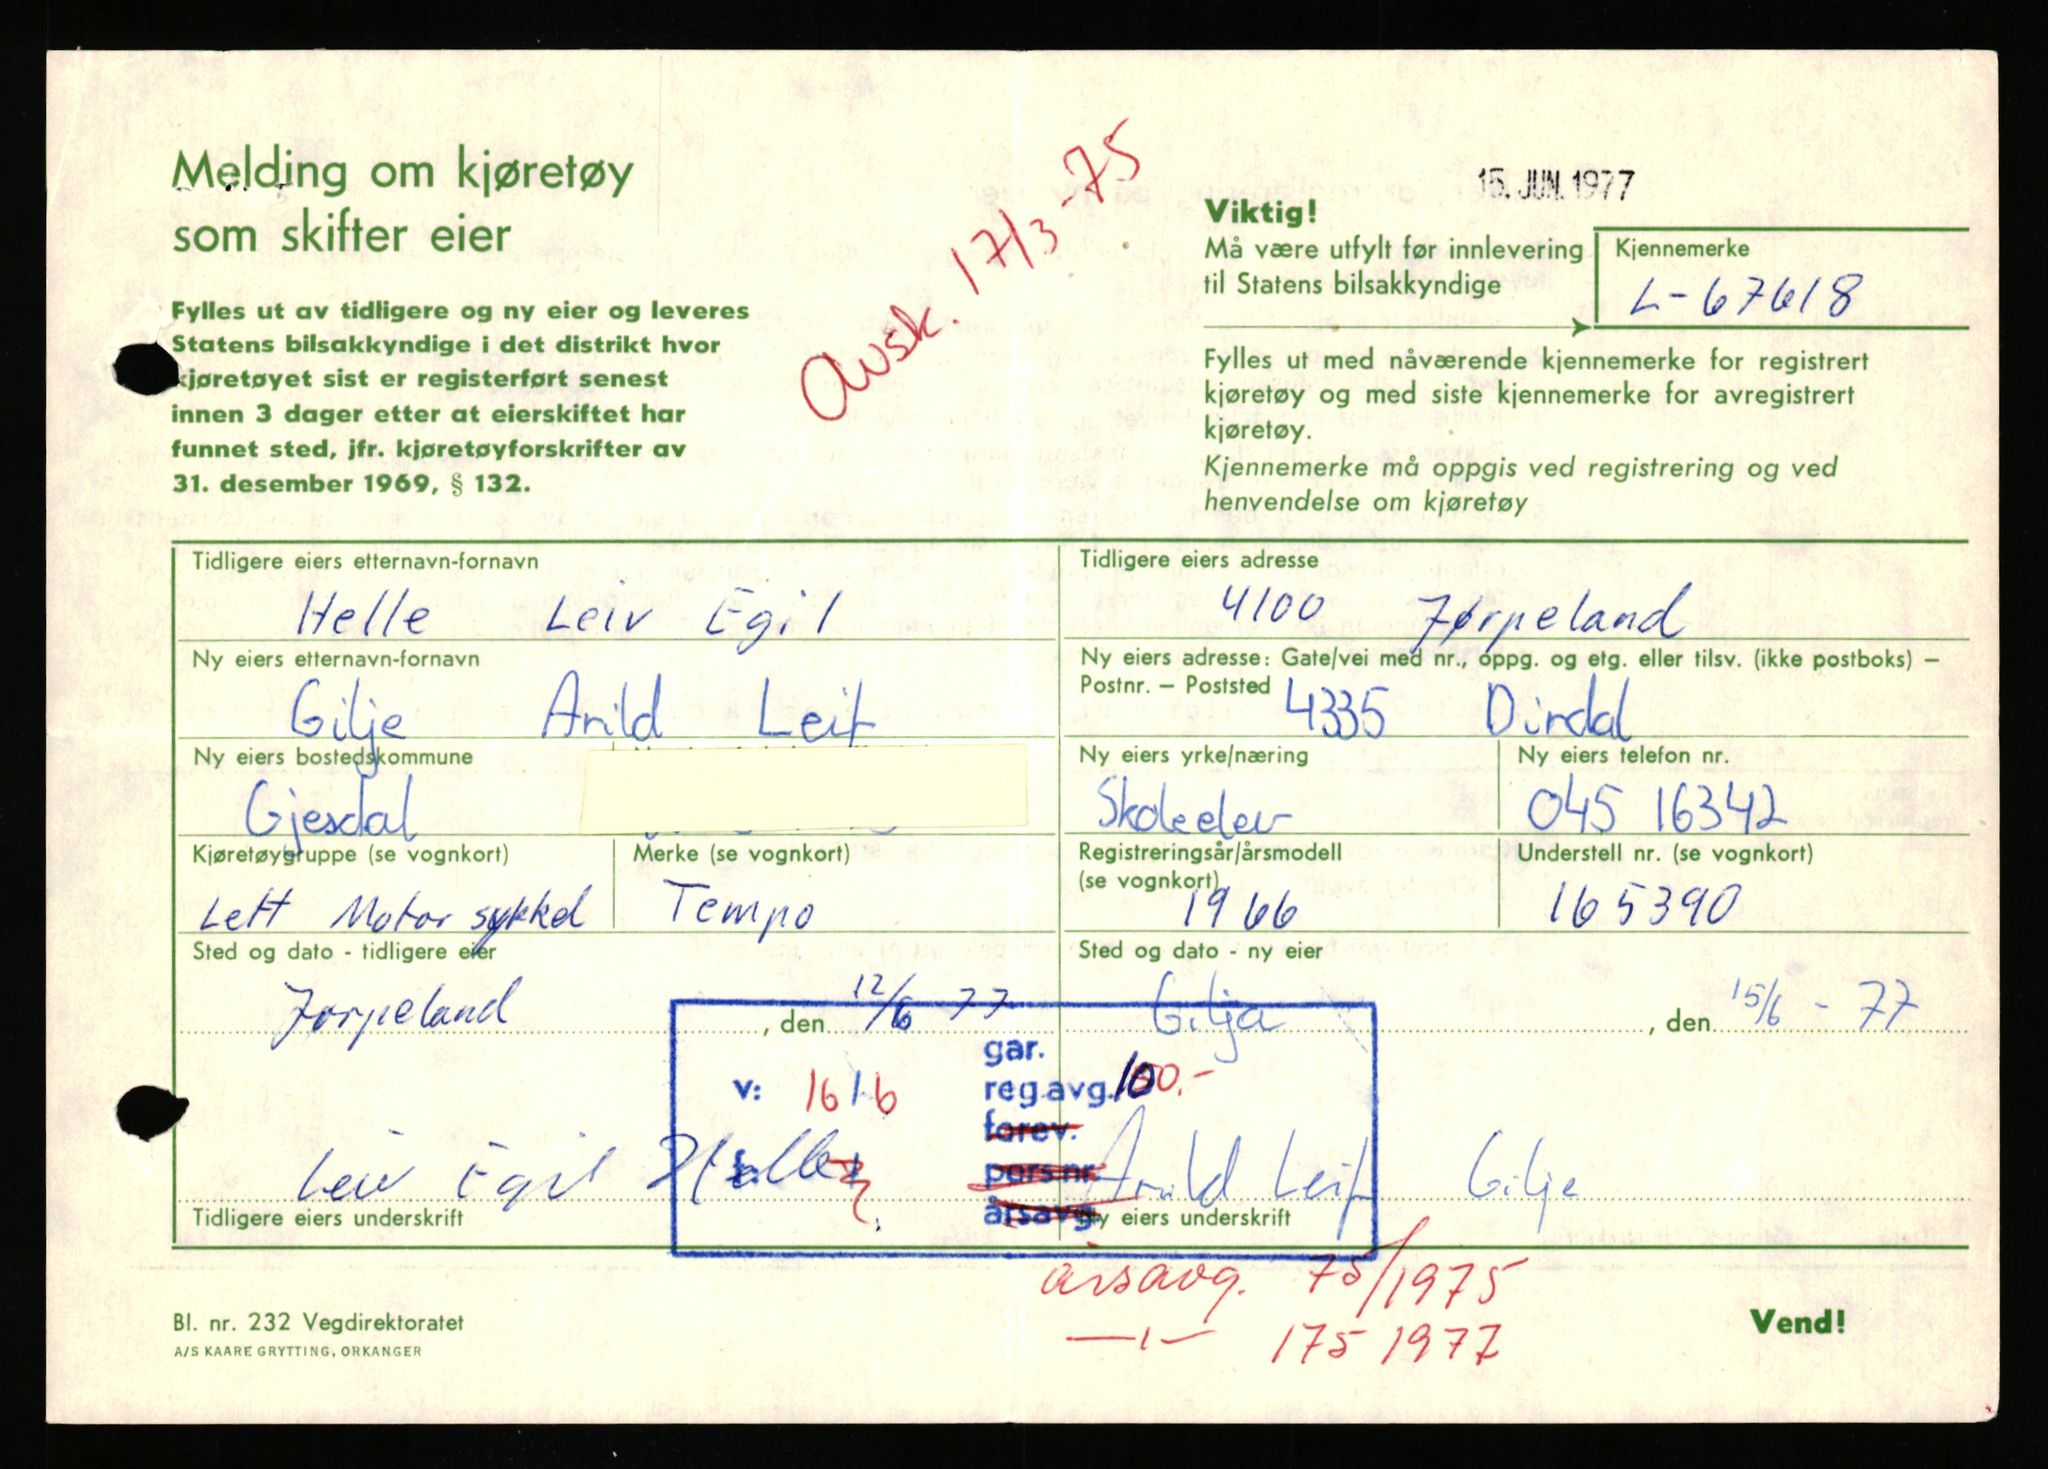 Melding om kjøretøy
som skifter eier
Fylles ut av tidligere og ny eier og leveres
Statens bilsakkyndige i det distrikt hvor
kjøretøyet sist er registerført senest
innen 3 dager etter at eierskiftet har
funnet sted, jfr. kjøretøyforskrifter av
31. desember 1969, § 132.
Avsk. 17/3-75
15. JUN. 1977
Viktig!
Må være utfylt før innlevering
til Statens bilsakkyndige
Kjennemerke
L-67618
Fylles ut med nåværende kjennemerke for registrert
kjøretøy og med siste kjennemerke for avregistrert
kjøretøy.
Kjennemerke må oppgis ved registrering og ved
henvendelse om kjøretøy
Tidligere eiers etternavn-fornavn
Helle Leiv Egil
Tidligere eiers adresse
4100 Jørpeland
Ny eiers etternavn-fornavn
Gilje Arild Leif
Ny eiers adresse: Gate/vei med nr., oppg. og etg. eller tilsv. (ikke postboks) –
Postnr. – Poststed 4335 Dirdal
Ny eiers bostedskommune
Gjesdal
Ny eiers yrke/næring
Skoleelev
Ny eiers telefon nr.
045 16342
Kjøretøygruppe (se vognkort)
Lett Motor sykkel
Merke (se vognkort)
Tempo
Registreringsår/årsmodell
(se vognkort)
1966
Understell nr. (se vognkort)
165390
Sted og dato - tidligere eier
Jørpeland, den 12/6 77
Sted og dato - ny eier
Gilja, den 15/6 - 77
gar.
v: 16/6 reg.avg. 100.-
forev.
pers.nr.
årsavg.
Leiv Egil Helle
Tidligere eiers underskrift
Arild Leif Gilje
Ny eiers underskrift
årsavg. 75/1975
—ı— 175 1977
Bl. nr. 232 Vegdirektoratet
A/S KAARE GRYTTING, ORKANGER
Vend!